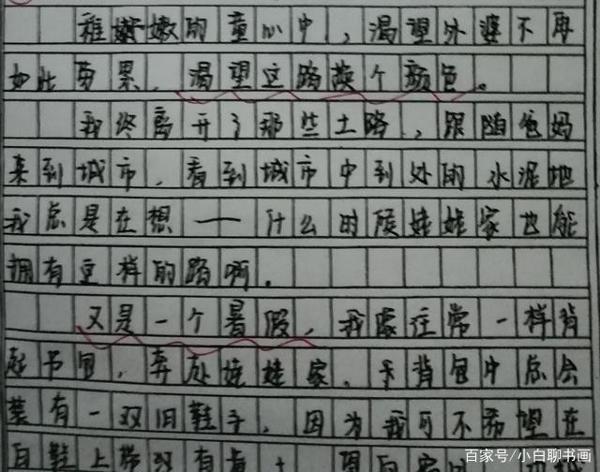 稚嫩嫩的童心中，渴望外婆不再
如此劳累，渴望这路换个颜色。
我终离开了那些土路，跟随爸妈
来到城市，看到城市中到处的水泥地
我总是在想——什么时候娃娃家也能
拥有这样的路啊。
又是一个暑假，我像往常一样背
起书包，奔赴娃娃家。背包中总会
装有一双旧鞋子，因为我可不希望在
白鞋上带
百家号/小白聊书画